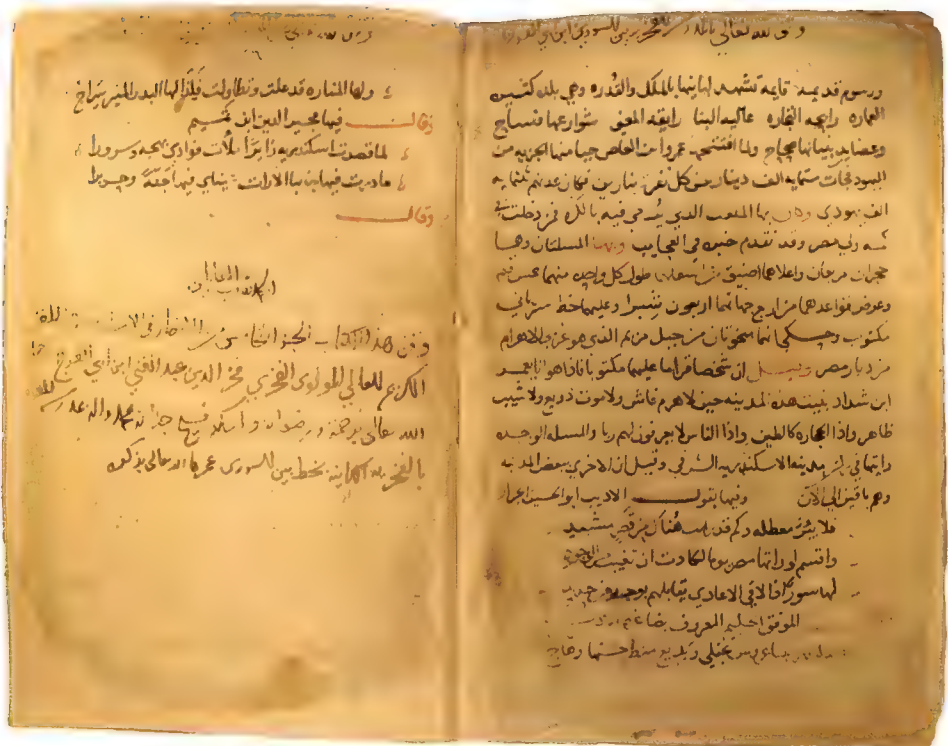 وقف لله تعالى بالمدرسة الفخرية بين السورين ابن ابي الفرج
ورسوم قديمة قايمه تشهد لها بانها بالملك والقدره وهي بلده كثيره
العماره رايجه التجاره عاليه البنا رايقه المغنى شوارعها فساح
وعضايد بنيانها صحاح ولما افتتحها عمرو ابن العاص جبا منها الجزيه من
اليهود فجات ستمايه الف دينار من كل نفر دينارين فكان عدتهم ثلثمايه
الف يهودي وكان بها الملعب الذي يرمى فيه بالكره فمن دخلت في
كمه ولي مصر وقد تقدم خبره في العجايب وبها المسلتان وهما
حجران مربعان واعلاهما اضيق من اسفلهما طول كل واحده منهما خمس قيم
وعرض قواعدهما من اربع جهاتها اربعون شبرا وعليهما خط سرياني
مكتوب وحكي انهما منحوتان من جبل بريم الذي هو غربي الاهرام
من ديار مصر وقيل ان شخصا قرا ما عليهما مكتوبا فاذا هو انا يعمر
ابن شداد بنيت هذه المدينه حين لا هرم فاش ولا موت ذريع ولا شيب
ظاهر واذا الحجاره كالطين واذا الناس لا يعرفون لهم ربا والمسله الواحده
رايتها في بمدينه الاسكندريه الشرقي وقيل ان الاخرى ببعض المدينه
وهم باقين الى الآن وفيها يقول الاديب ابو الحسين الجزار
فلا بئر معطله وكم قد رايت هناك من قصر مشيد
واقسم لو راتها مصر يوما لكادت ان تغيب من الوجود
لها سور اذا لاقى الاعادي يقابلهم بوجه من حديد
الموفق احكيم المعروف
تجلى وبديع منظر حسنها وهاج
ولها المناره قد علت وتطاولت فكانها البدر المنير سراج
وقال فيها مجير الدين ابن تميم
لما قصدت اسكندريه زايرا ملأت فوادي بهجه وسرورا
ما درت فيها جانبا الا رات عيناي فيها جنة وحريرا
وقال
وقف هذا الكتاب الجزء الثامن من
الكريم العالي المولوي الفخري فخر الدين عبد الغني ابن ابي الفرج
الله تعالى برحمته ورضوانه واسكنه فسيح جنانه بمحمد واله
بالفخرية بخط بين السورين عمرها الله تعالى بذكره